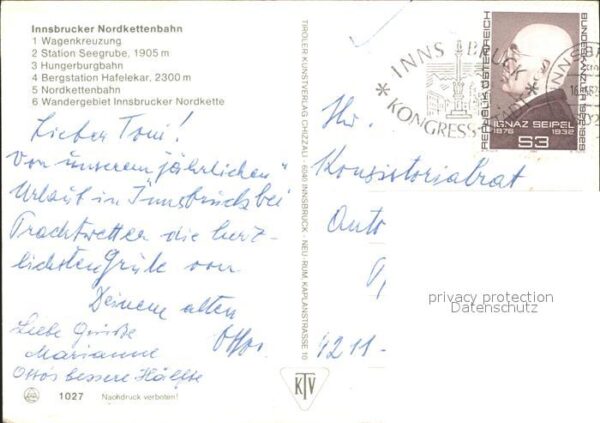 Innsbrucker Nordkettenbahn
1 Wagenkreuzung
2 Station Seegrube, 1905 m
3 Hungerburgbahn
4 Bergstation Hafelekar, 2300 m
5 Nordkettenbahn
6 Wandergebiet Innsbrucker Nordkette
Lieber Toni!
Von unserem „jährlichen"
Urlaub in Innsbruck bei
Prachtwetter die herz-
lichsten Grüße von
Deinem alten
Otto.
Liebe Grüße
Marianne
Ottos bessere Hälfte
1027 Nachdruck verboten!
TIROLER KUNSTVERLAG CHIZZALI · 6040 INNSBRUCK - NEU-RUM, KAPLANSTRASSE 10
KTV
INNSBRUCK
KONGRESS-
REPUBLIK ÖSTERREICH
BUNDESKANZLER
IGNAZ SEIPEL
1876 1932
S3
Hr.
Konsistorialrat
4211-
privacy protection
Datenschutz